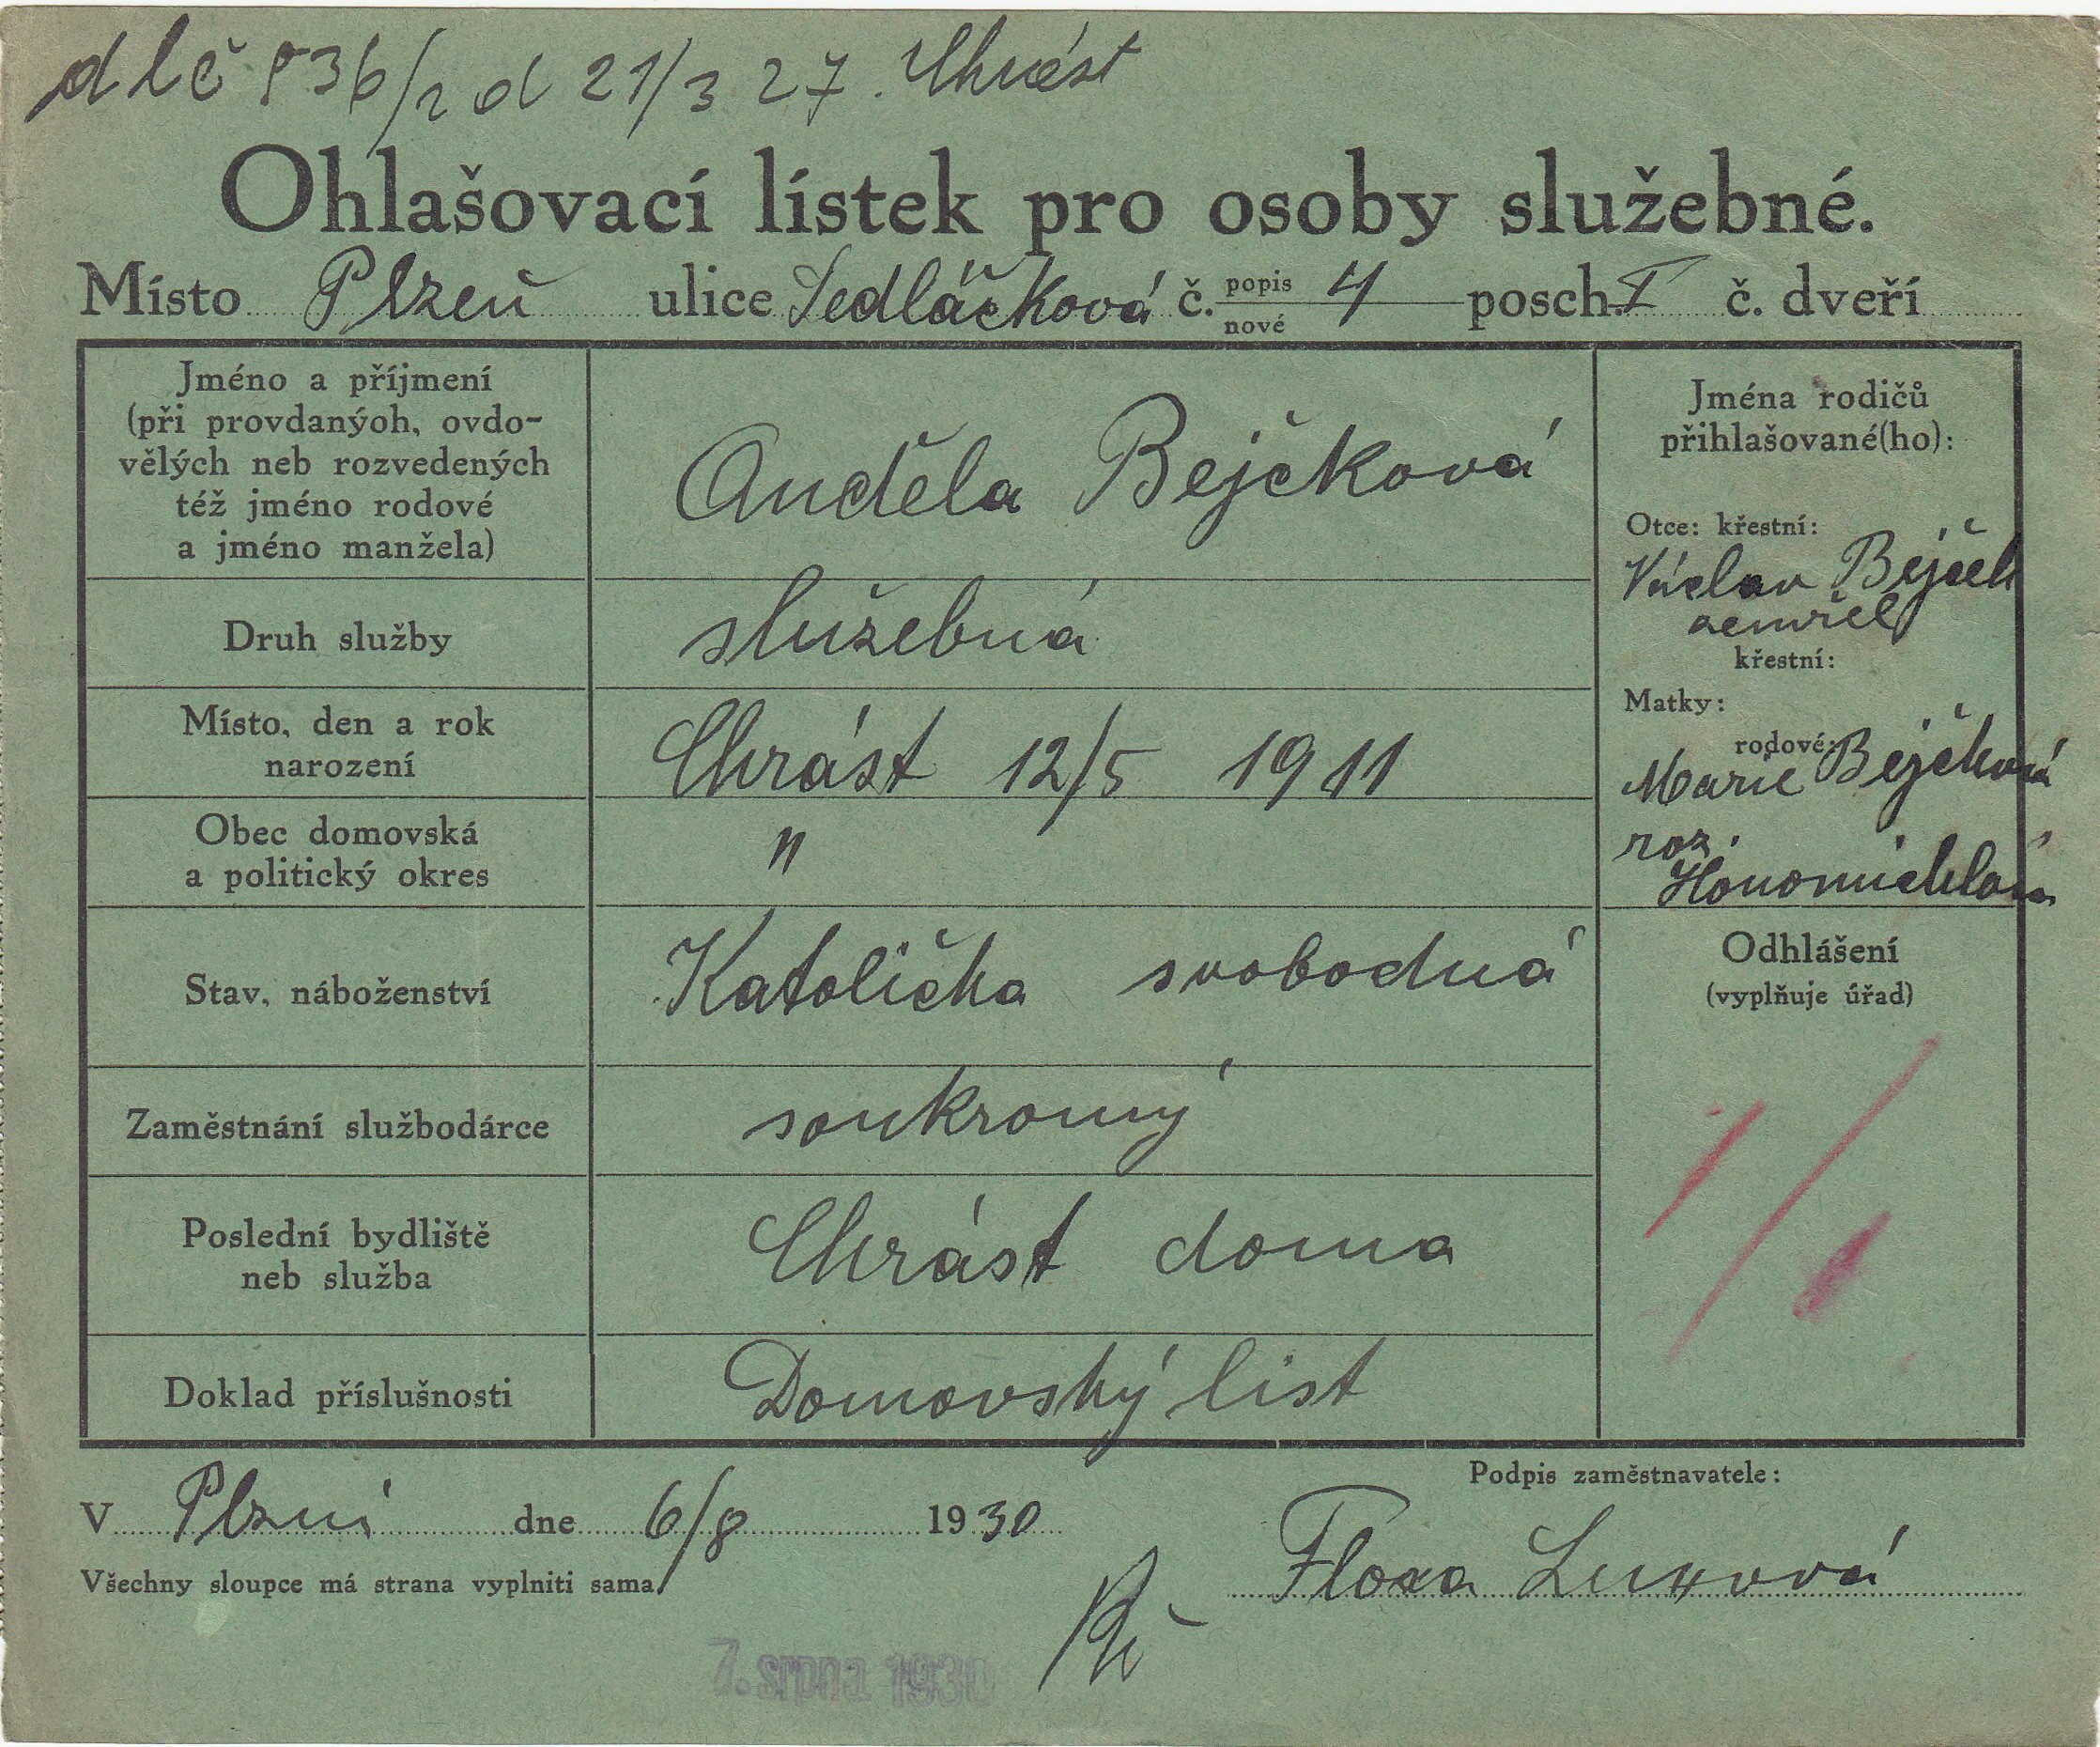 d l č 836/2 d 21/3 27. Chrást
Ohlašovací lístek pro osoby služebné.
Místo Plzeň ulice Sedláčková č. popis nové 4 posch. I č. dveří
Jméno a příjmení
(při provdanýoh, ovdo-
vělých neb rozvedených
též jméno rodové
a jméno manžela)
Anděla Bejčková
Druh služby
služebná
Místo, den a rok
narození
Chrást 12/5 1911
Obec domovská
a politický okres
"
Stav, náboženství
Katolička svobodná
Zaměstnání službodárce
soukromý
Poslední bydliště
neb služba
Chrást doma
Doklad příslušnosti
Domovský list
Jména rodičů
přihlašované(ho):
Otce: křestní:
Václav Bejček
zemřel
křestní:
Matky:
rodové:
Marie Bejčková
roz.
Honomichlová
Odhlášení
(vyplňuje úřad)
V Plzni dne 6/8 1930
Všechny sloupce má strana vyplniti sama.
Podpis zaměstnavatele:
Flora Luxová
7. srpna 1930